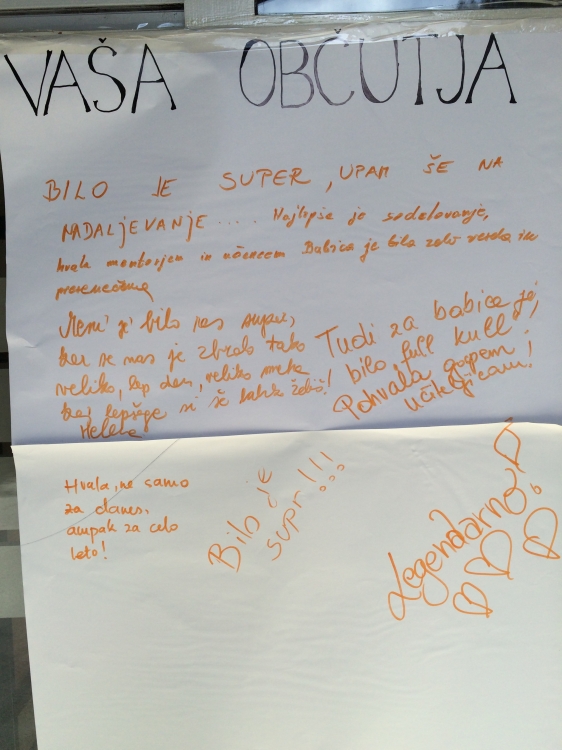 VAŠA OBČUTJA
BILO JE SUPER, UPAM ŠE NA
NADALJEVANJE .... Najlepše je sodelovanje,
hvala mentorjem in učencem Babica je bila zelo vesela in
presenečena
Meni je bilo res super,
ker se nas je zbralo tako
veliko, lep dan, veliko sreče
kaj lepšega si še lahko želiš!
Helena
Tudi za babice je
bilo full kull,
Pohvala gospem
učiteljicam!
Hvala, ne samo
za danes,
ampak za celo
leto!
Bilo je
supr!!!
Legendarno!